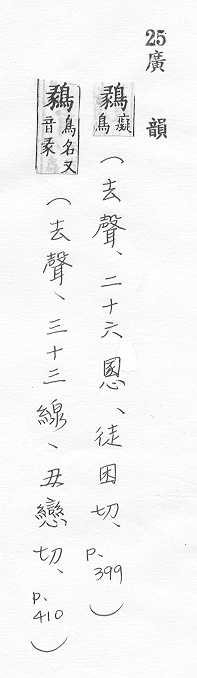 25 廣韻
鶨癡鳥(去聲、二十六慁、徒困切、p.399)
鶨鳥名又音彖(去聲、三十三線、丑戀切、p.410)